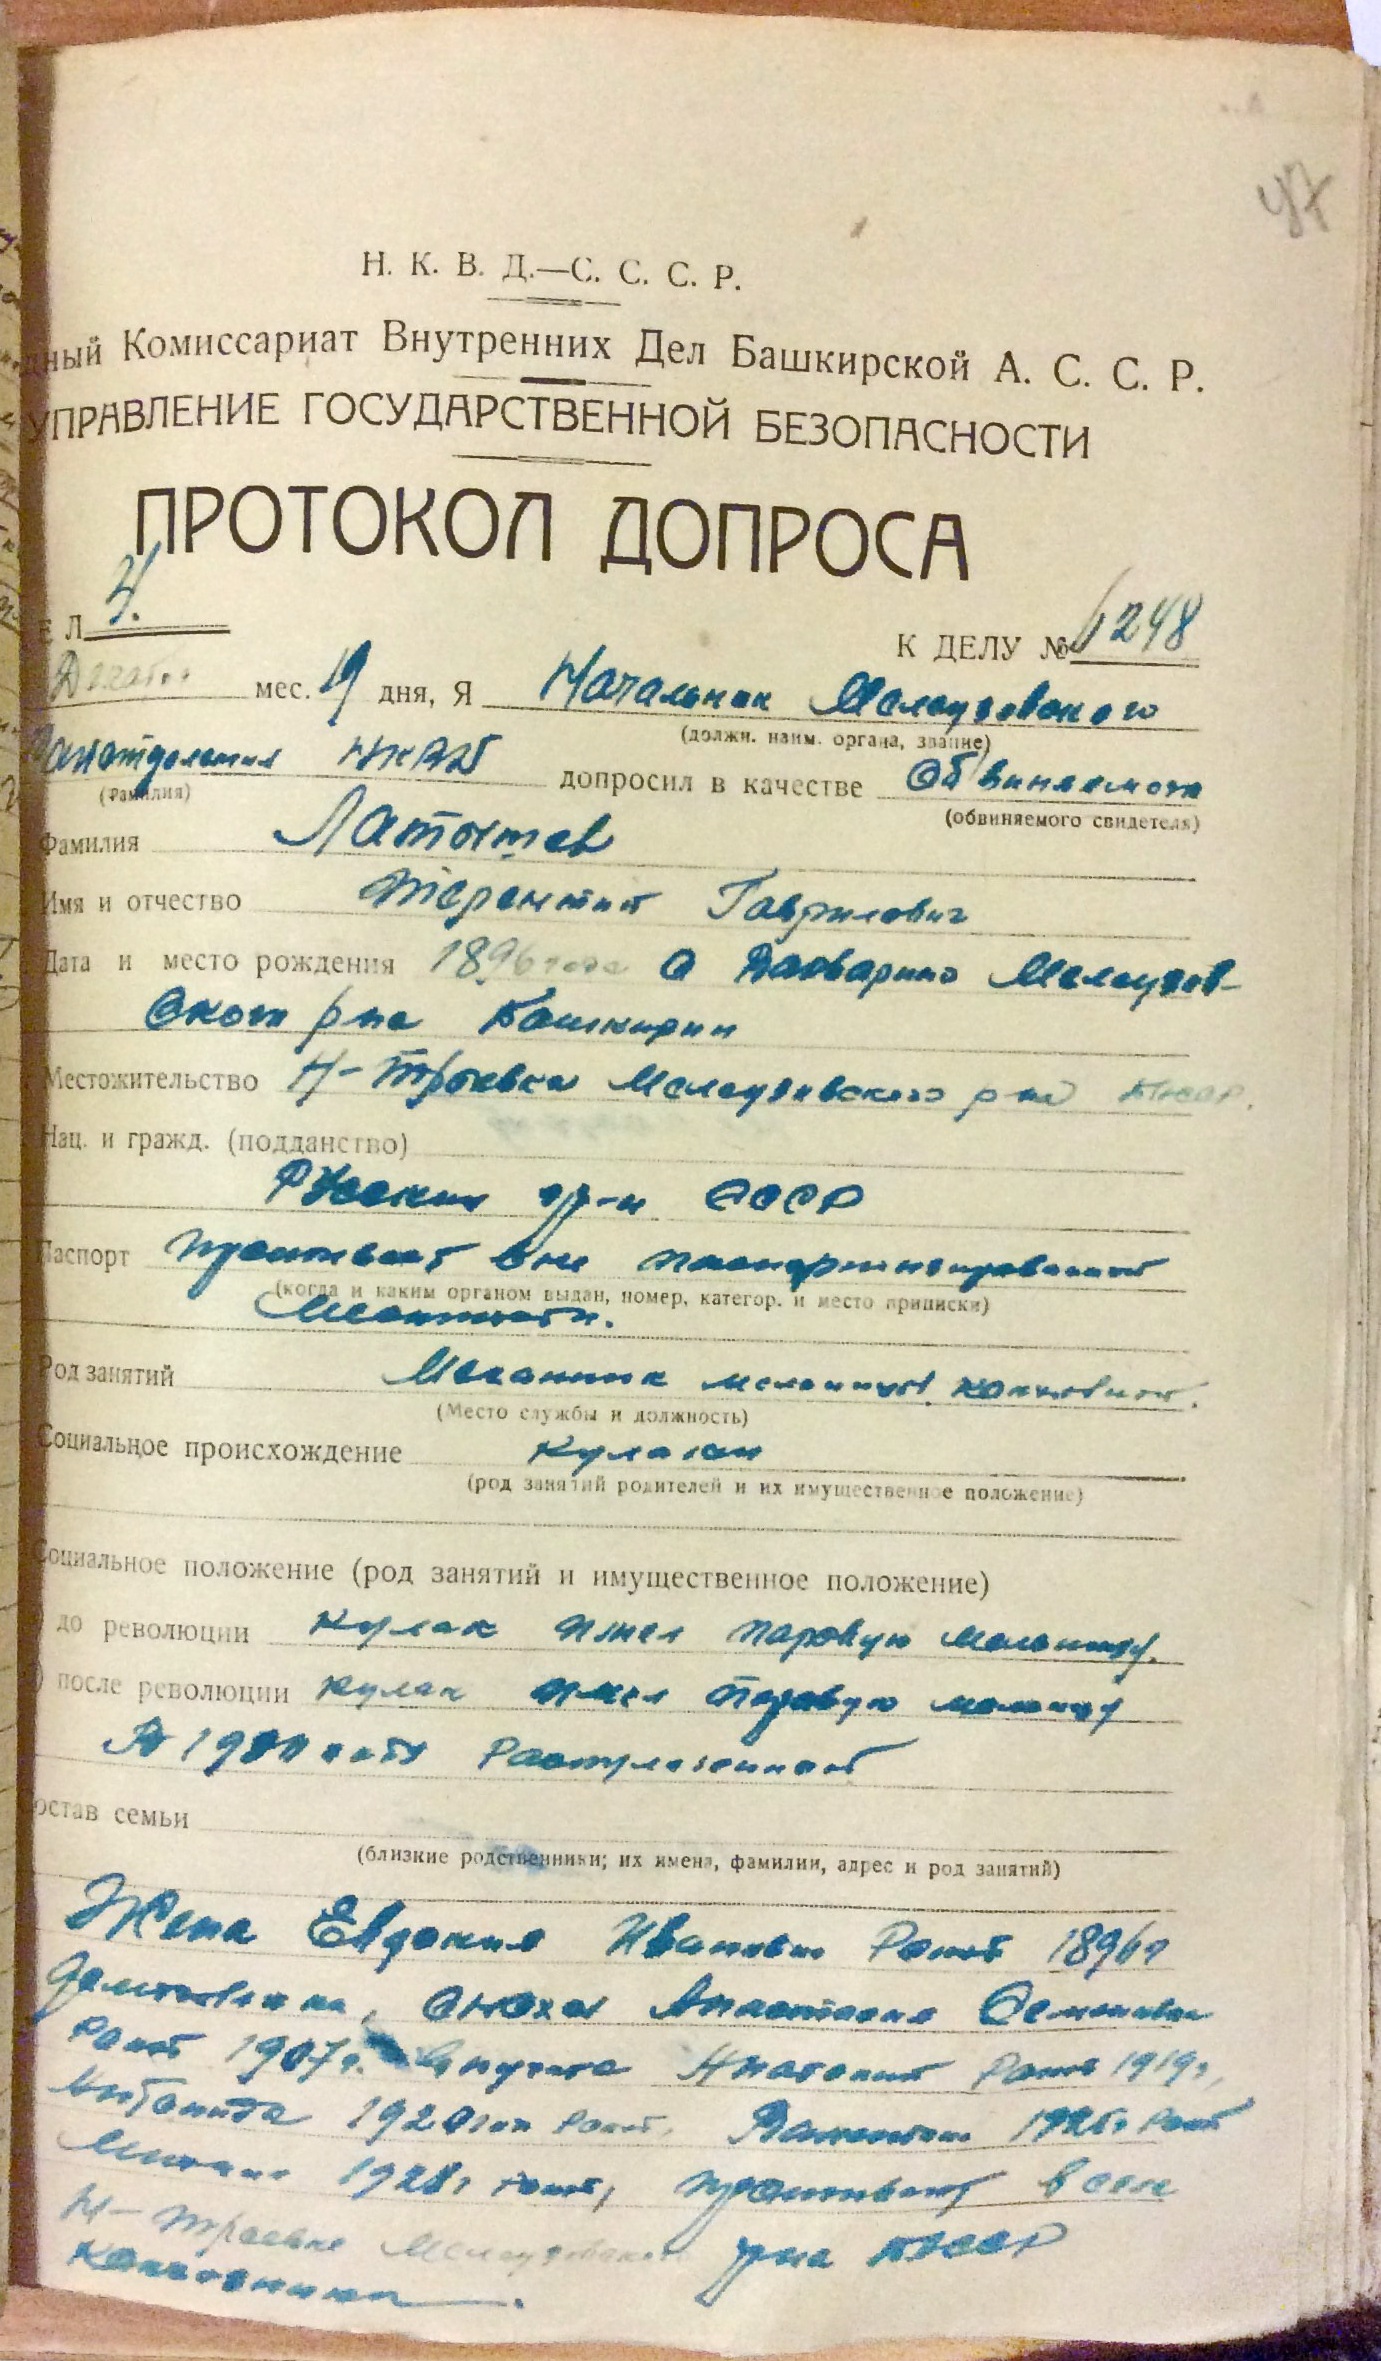 47
Н. К. В. Д.—С. С. С. Р.
дный Комиссариат Внутренних Дел Башкирской А. С. С. Р.
УПРАВЛЕНИЕ ГОСУДАРСТВЕННОЙ БЕЗОПАСНОСТИ
ПРОТОКОЛ ДОПРОСА
Е Л 4.
К ДЕЛУ № 6248
мес. 19 дня, Я Начальник Мелеузовского
(должн. наим. органа, звание)
НКВД допросил в качестве Обвиняемого
(Фамилия)
(обвиняемого свидетеля)
Фамилия Латышев
Имя и отчество Терентий Гаврилович
Дата и место рождения 1896 года с Варварино Мелеузов-
ского р на Башкирии
Местожительство Н-Троевка Мелеузовского р на БАССР.
Нац. и гражд. (подданство)
Русский гр-н СССР
Паспорт проживает вне паспортизированной
(когда и каким органом выдан, номер, категор. и место приписки)
Местности.
Род занятий Механик мельницы колхозной.
(Место службы и должность)
Социальное происхождение кулаки
(род занятий родителей и их имущественное положение)
Социальное положение (род занятий и имущественное положение)
) до революции кулак имел паровую мельницу.
) после революции кулак имел паровую мельницу
В Раскулаченный
остав семьи
(близкие родственники; их имена, фамилии, адрес и род занятий)
Жена Евдокия Ивановна Рожд 1896г
домохозяйка, сноха Анастасия Семеновна
Рожд 1907г. внучата Анатолий Рожд 1919г,
Рожд. Валентин 1926г Рожд
1928г рожд, проживают в селе
Н-Троевке Мелеузовского р на БАССР
Колхозники.